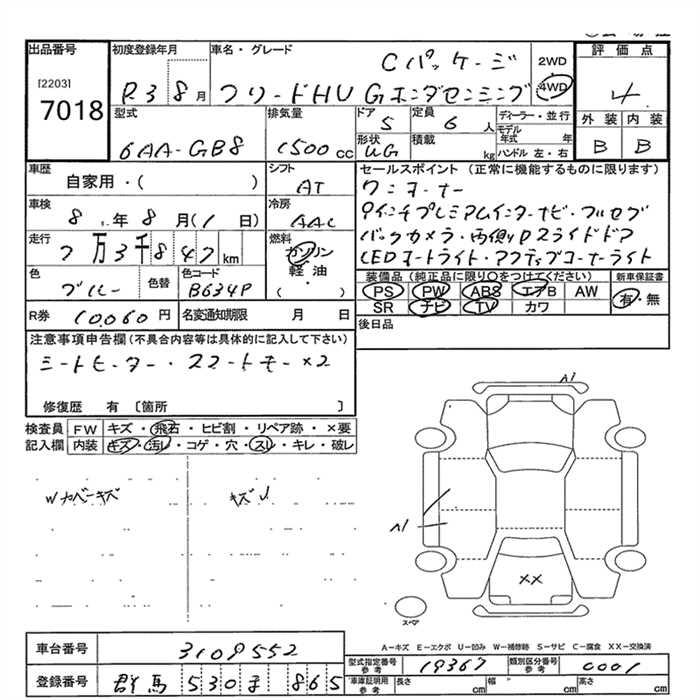 出品番号
[2203]
7018
初度登録年月
R3 8月
車名・グレード
Cパッケージ
フリードHV Gホンダセンシング
2WD
4WD
評価点
4
外装 内装
B B
型式
6AA-GB8
排気量
1500 cc
ドア
5
定員
6 人
形状
UG
積載
kg
ディーラー・並行
モデル年式 年
ハンドル 左・右
車歴
自家用・( )
シフト
AT
車検
8年 8月(1日)
冷房
AAC
走行
2万3千847 km
燃料
ガソリン
軽油
( )
色
ブルー
色替
色コード
B634P
R券 10,060円
名変通知期限 月 日
セールスポイント(正常に機能するものに限ります)
ワンオーナー
9インチプレミアムインターナビ・フルセグ
バックカメラ・両側Pスライドドア
LEDオートライト・アクティブコーナーライト
装備品(純正品に限り○をつけてください)
PS PW ABS エアB AW
SR ナビ TV カワ
新車保証書
有・無
後日品
注意事項申告欄(不具合内容等は具体的に記入して下さい)
シートヒーター・スマートキー×2
修復歴 有〔箇所 〕
検査員記入欄
FW キズ・飛石・ヒビ割・リペア跡・×要
内装 キズ・汚レ・コゲ・穴・スレ・キレ・破レ
Wカバーキズ
キズU
A1
A1
××
スペア
A-キズ E-エクボ U-凹み W-補修跡 S-サビ C-腐食 XX-交換済
車台番号 3109552
登録番号 群馬 530 ま 865
型式指定番号 参考 19367
類別区分番号 参考 0001
車庫証明用 参考 長さ cm 幅 cm 高さ cm